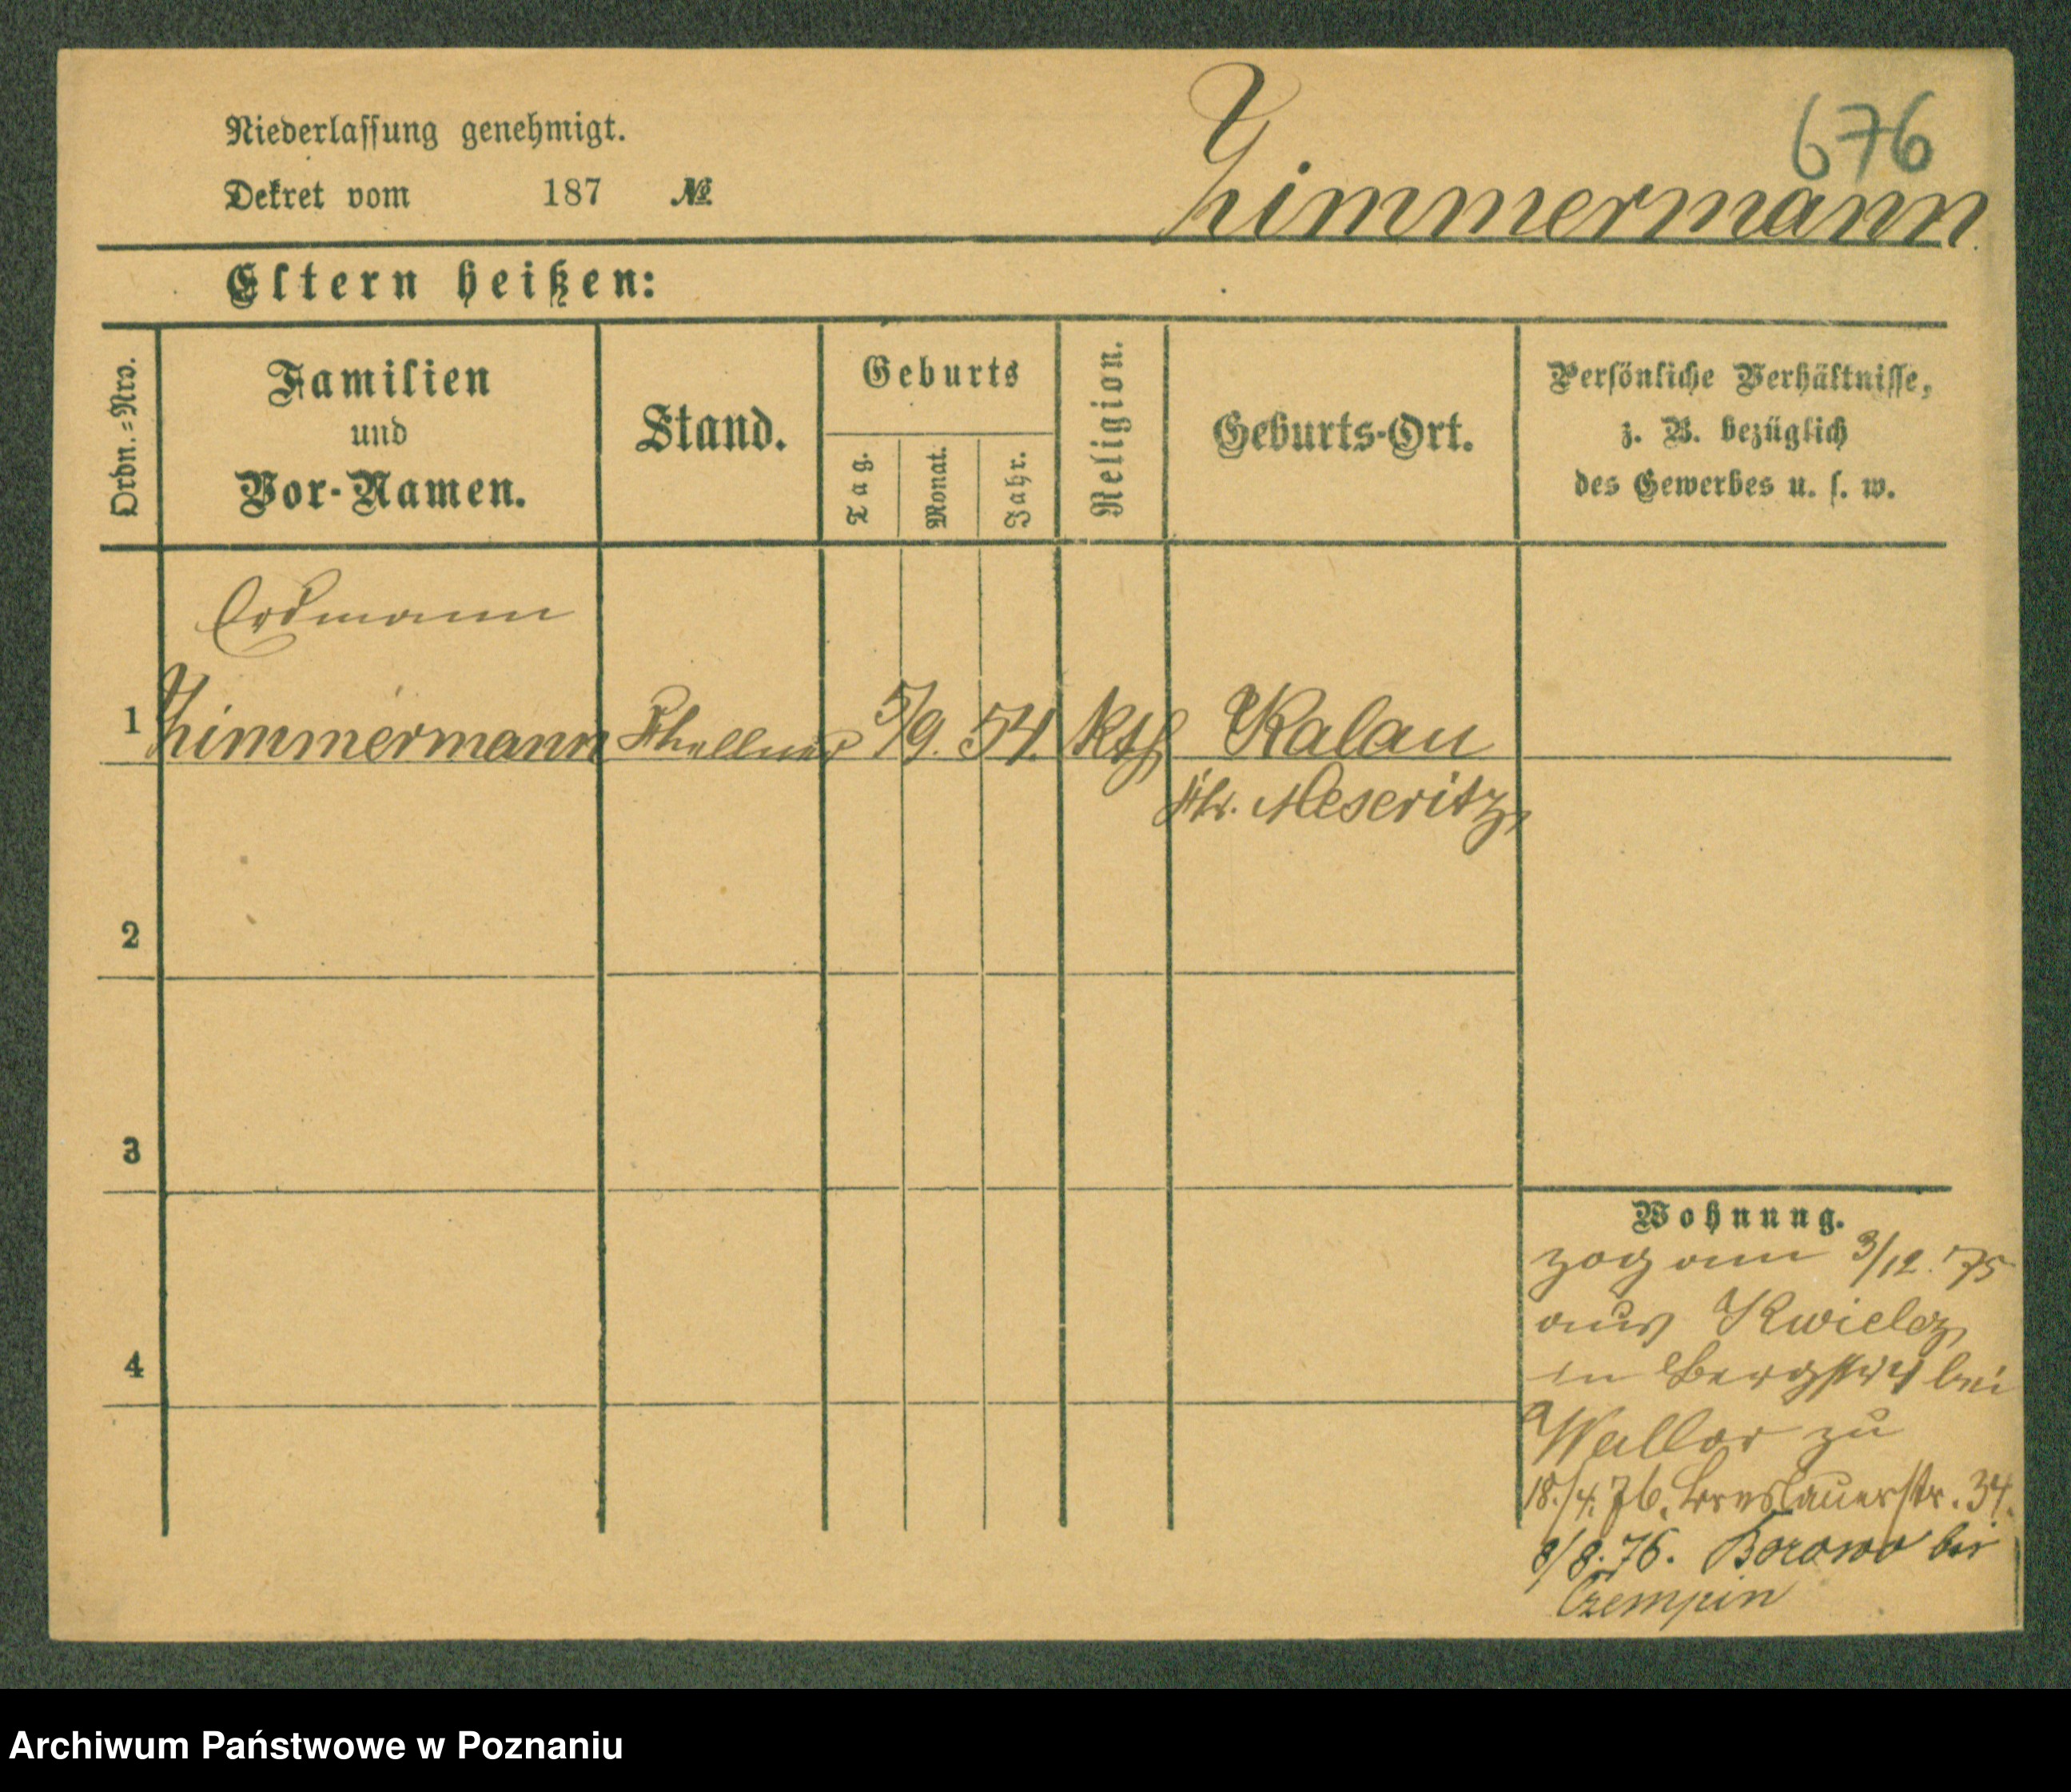 676
Niederlassung genehmigt.
Dekret vom 187 №
Zimmermann
Eltern heißen:
Ordn.=Nro.
Familien
und
Vor-Namen.
Stand.
Geburts
Tag.
Monat.
Jahr.
Religion.
Geburts-Ort.
Persönliche Verhältnisse,
z. B. bezüglich
des Gewerbes u. s. w.
Erdmann
1 Zimmermann 5/9. 54. kth Kalau
Kr. Meseritz,
2
3
4
Wohnung.
zog am 3/12. 75
aus Kwielcz
in bei
zu
18./4. 76. Breslauerstr. 34.
8/8. 76. Borowo bei
Czempin
Archiwum Państwowe w Poznaniu